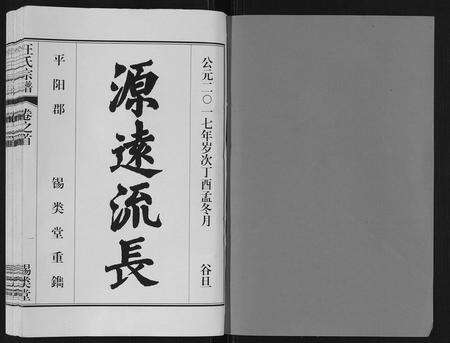 公元二〇一七年岁次丁酉孟冬月 谷旦
源遠流長
平阳郡 锡类堂重鐫
汪氏宗谱 卷之首 一 锡类堂